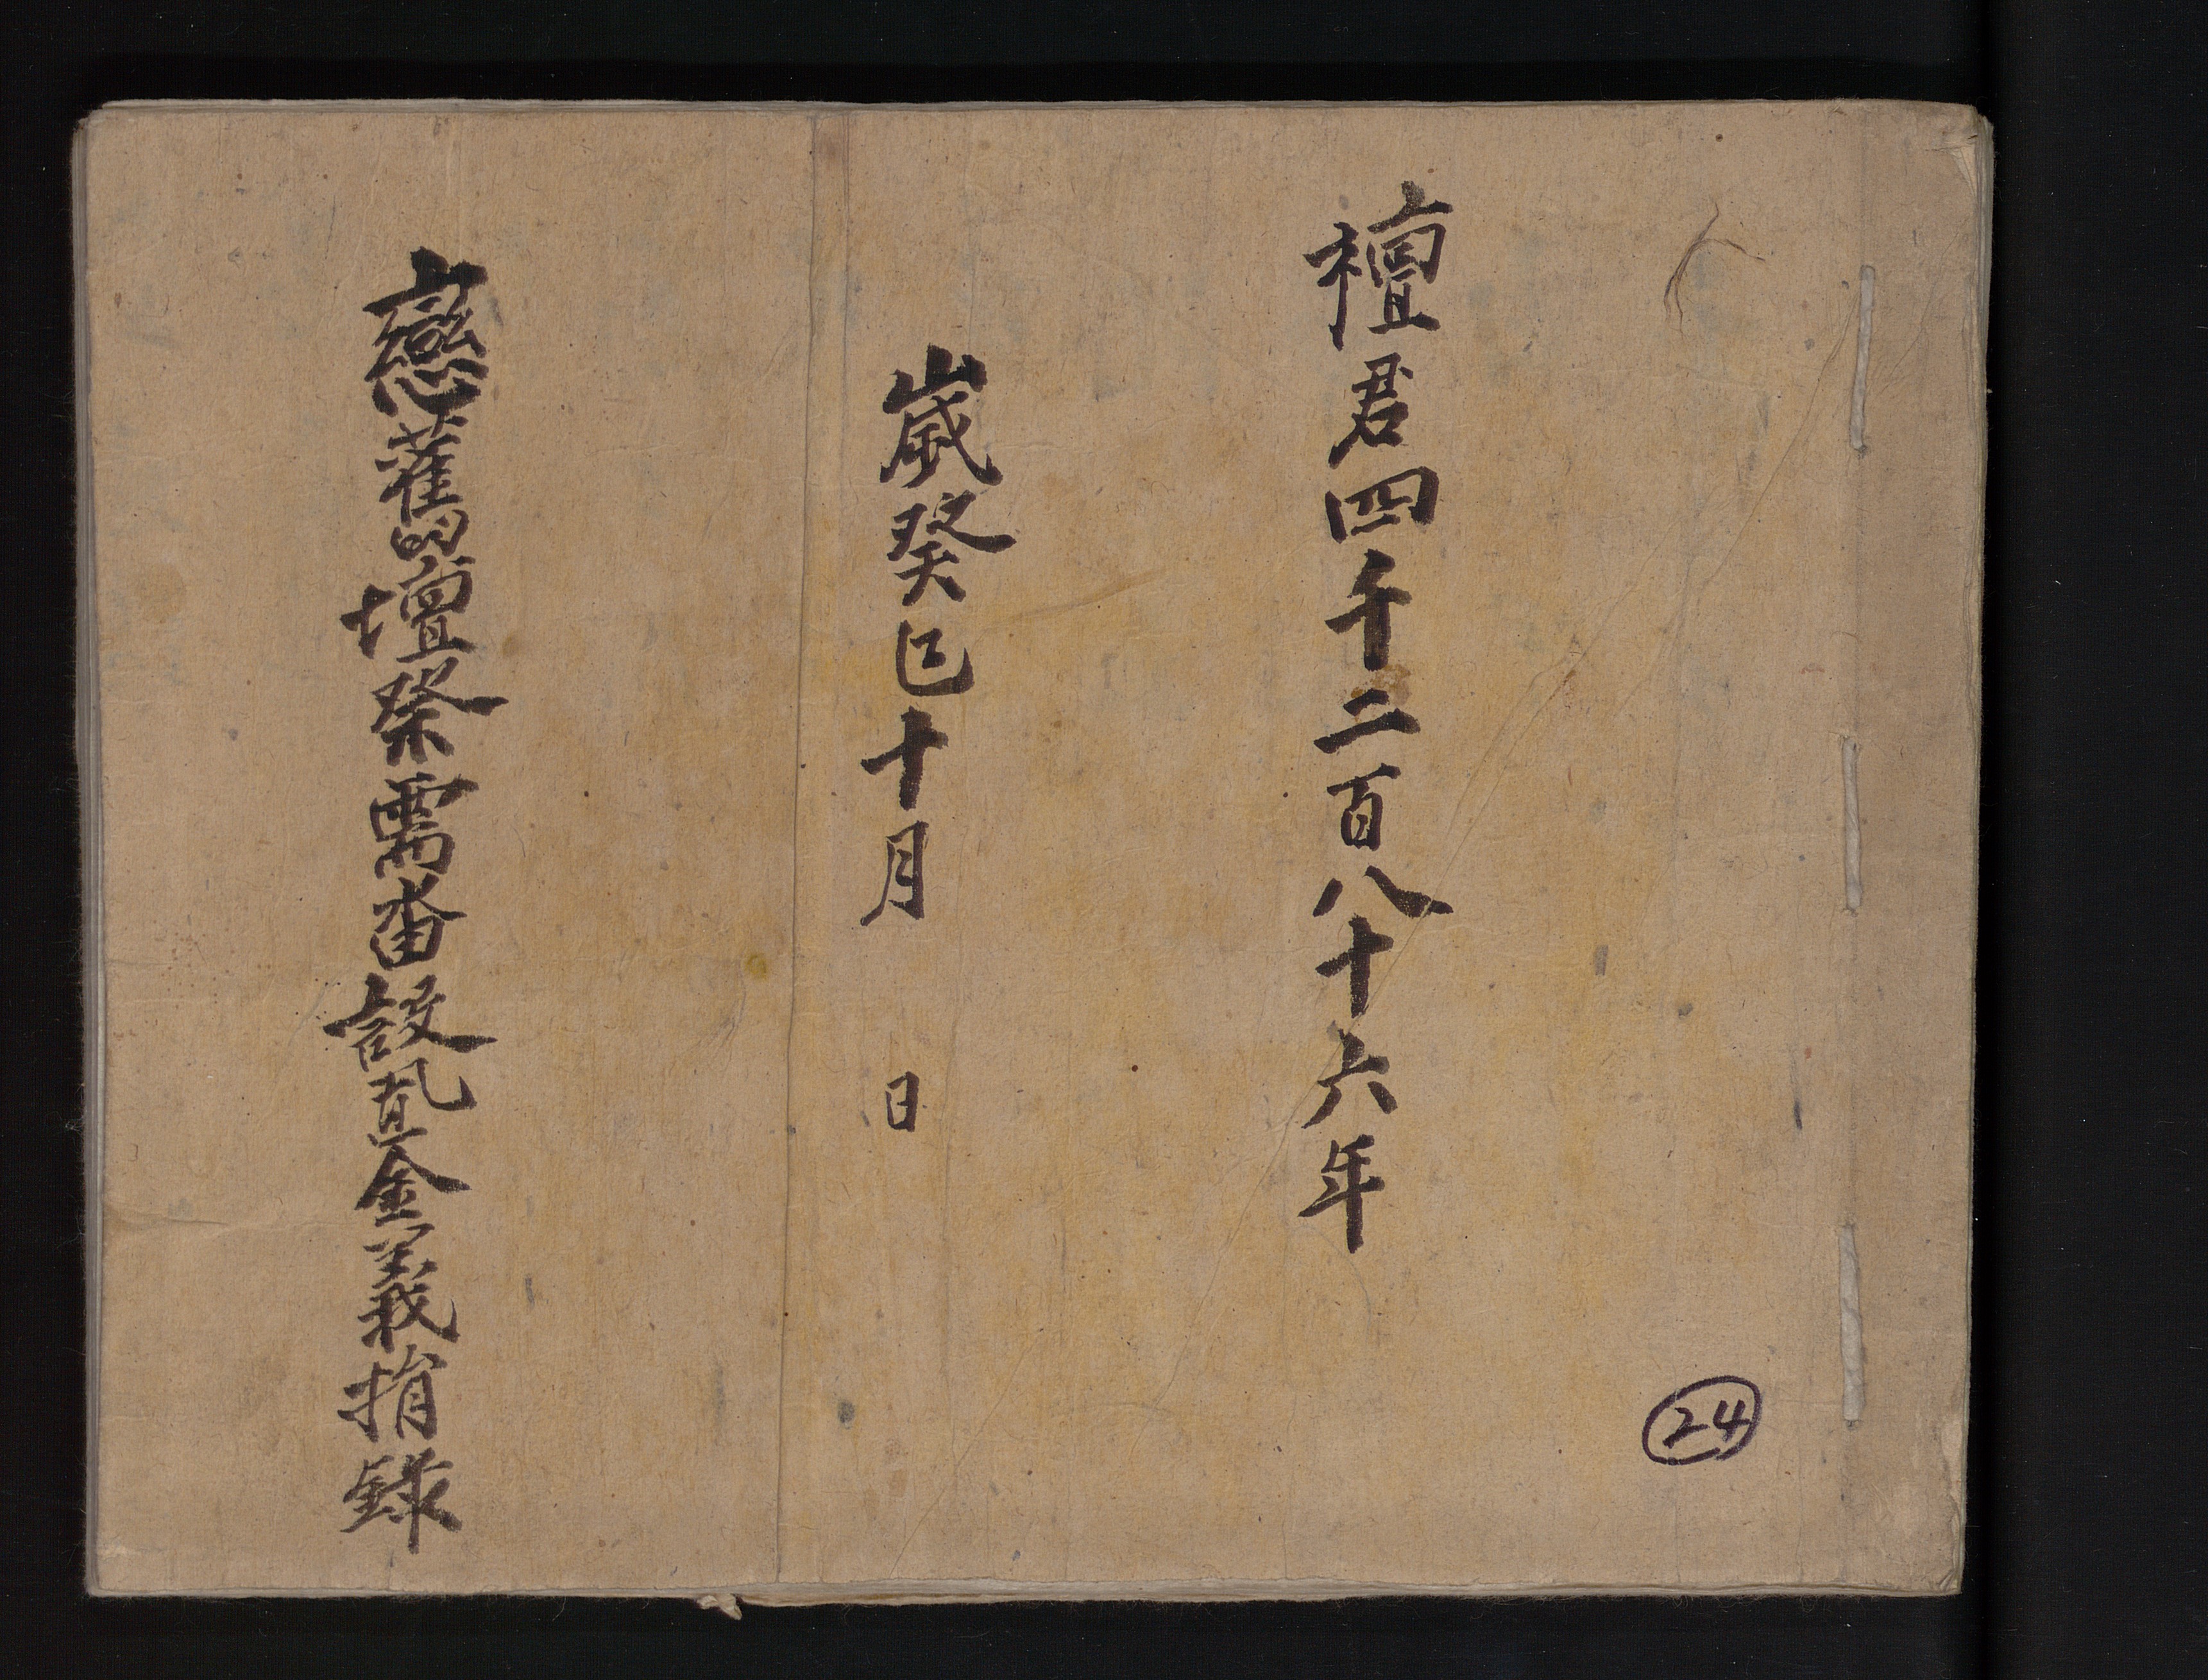 檀君四千二百八十六年
歲癸巳十月 日
戀舊壇祭需畓設置金義捐錄
24